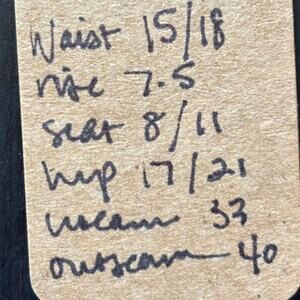 Waist 15/18
rise 7.5
seat 8/11
hip 17/21
inseam 33
outseam 40